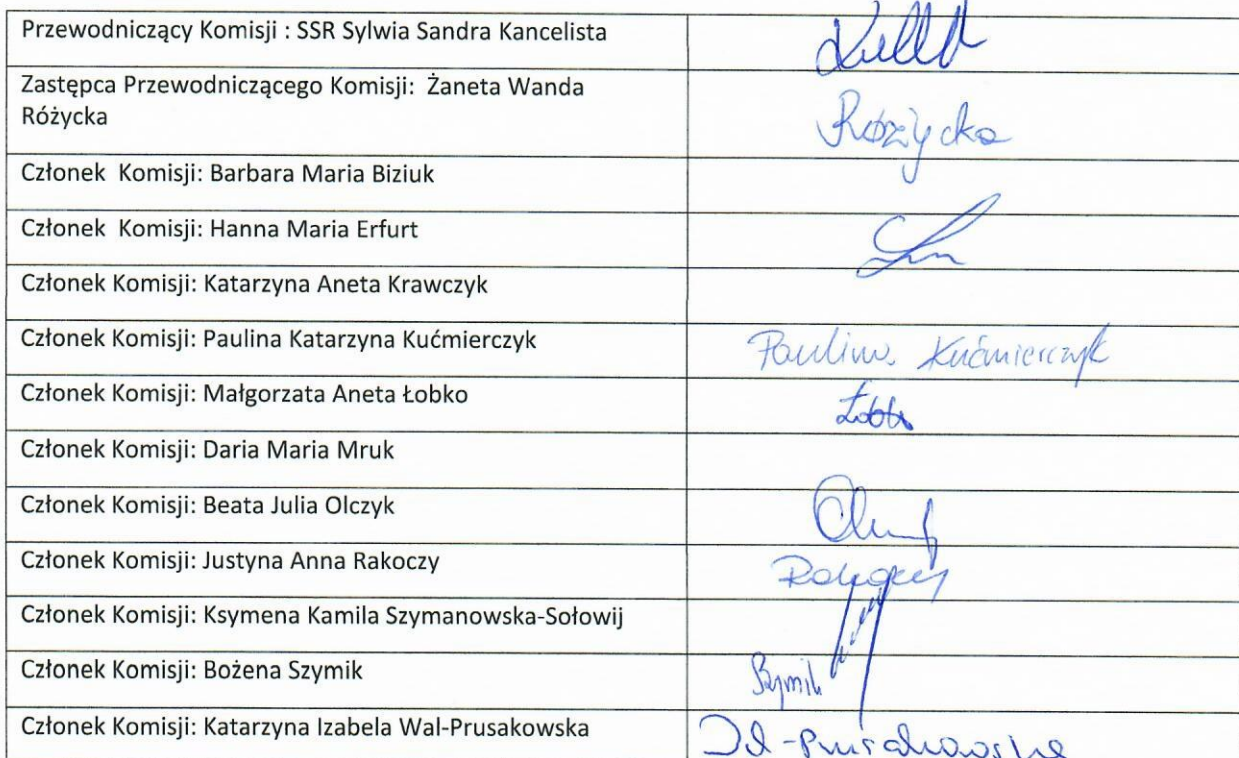 Przewodniczący Komisji : SSR Sylwia Sandra Kancelista
Zastępca Przewodniczącego Komisji: Żaneta Wanda
Różycka
Różycka
Członek Komisji: Barbara Maria Biziuk
Członek Komisji: Hanna Maria Erfurt
Członek Komisji: Katarzyna Aneta Krawczyk
Członek Komisji: Paulina Katarzyna Kućmierczyk
Paulina Kućmierczyk
Członek Komisji: Małgorzata Aneta Łobko
Członek Komisji: Daria Maria Mruk
Członek Komisji: Beata Julia Olczyk
Członek Komisji: Justyna Anna Rakoczy
Rakoczy
Członek Komisji: Ksymena Kamila Szymanowska-Sołowij
Członek Komisji: Bożena Szymik
Szymik
Członek Komisji: Katarzyna Izabela Wal-Prusakowska